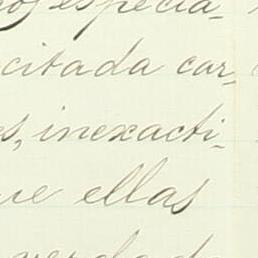 especia-
citada car-
s, inexacti-
ue ellas
verdad